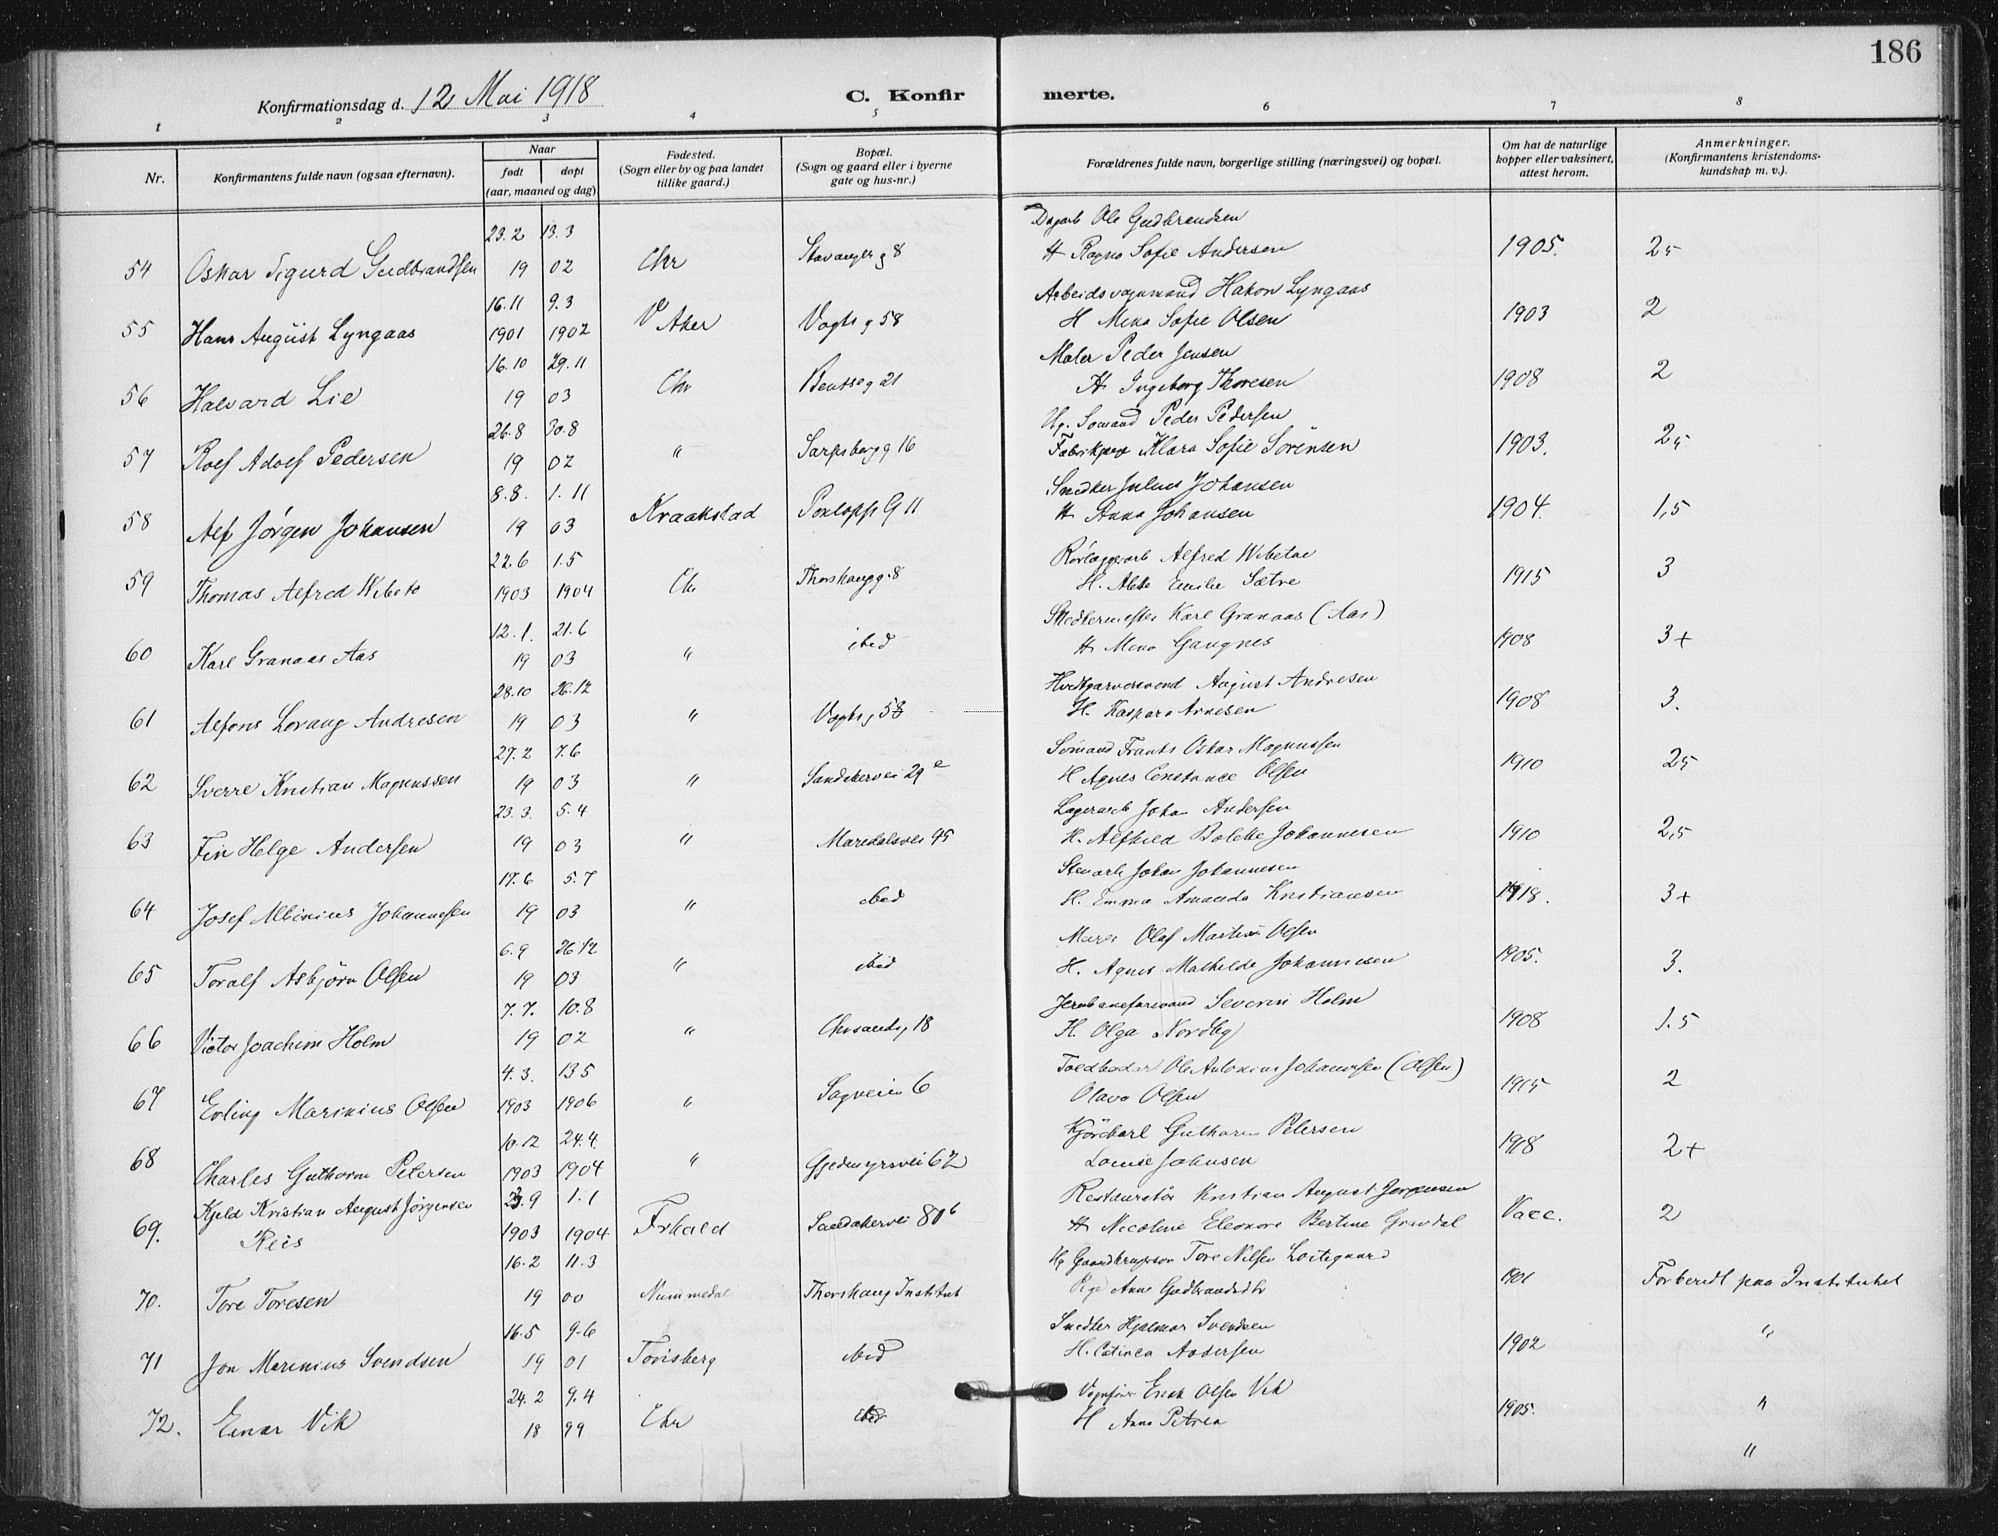 186
Konfirmationsdag d. 12 Mai 1918 C. Konfir merte.
1 2 3 4 5 6 7 8
Nr. Konfirmantens fulde navn (ogsaa efternavn). Naar født døpt (aar, maaned og dag) Fødested. (Sogn eller by og paa landet tillike gaard.) Bopæl. (Sogn og gaard eller i byerne gate og hus-nr.) Forældrenes fulde navn, borgerlige stilling (næringsvei) og bopæl. Om hat de naturlige kopper eller vaksinert, attest herom. Anmerkninger. (Konfirmantens kristendoms-kundskap m. v.).
23.2 13.3 Dagarb Ole Gudbrandsen
54 Oskar Sigurd Gudbrandsen 19 02 Chr Stavangerg 8 H Ragna Sofie Andersen 1905. 2,5
16.11 9.3 Arbeidsvognmand Hakon Lyngaas
55 Hans August Lyngaas 1901 1902 V Aker Vogtsg 58 H Mina Sofie Olsen 1903 2
16.10 29.11 Maler Peder Jensen
56 Halvard Lie 19 03 Chr Bentseg 21 H Ingeborg Thoresen 1908 2
26.8 30.8 Ug. Sømand Peder Pedersen
57 Rolf Adolf Pedersen 19 02 " Sarpsborgg 16 Fabrikpige Klara Sofie Sørensen 1903. 2,5
8.8. 1.11 Snedker Julius Johansen
58 Alf Jørgen Johansen 19 03 Kraakstad G 11 H Anna Johansen 1904. 1,5
22.6 1.5 Rørlæggerarb Alfred Wibetoe
59 Thomas Alfred Wibeto 1903 1904 Chr Thorshaugg. 8 H. Emilie Sætre 1915 3
12.1. 21.6 Snedkermester Karl Granaas (Aas)
60 Karl Granaas Aas 19 03 " ibid H Mina Gangnes 1908 3+
28.10 26.12 August Andresen
61 Alfons Lorang Andresen 19 03 " Vogtsg 58 H. Kaspara Arnesen 1908 3.
27.2 7.6 Sømand Frants Oskar Magnussen
62 Sverre Kristian Magnussen 19 03 " Sandakervei 29 e H Agnes Constance Olsen 1910 2,5
23.3. 5.4 Lagerarb Johan Andersen
63 Fin Helge Andersen 19 03 " Maridalsvei 95 H. Alfhild Bolette Johannesen 1910 2,5
17.6 5.7 Stenarb Johan Johannesen
64 Josef Albinius Johannesen 19 03 " ibid H. Emma Amanda Kristiansen 1918. 3+
6.9 26.12 Murer Olaf Martin Olsen
65 Toralf Asbjørn Olsen 19 03 " ibid H. Agnes Mathilde Johannesen 1905. 3.
7.7. 10.8 Severin Holm
66 Victor Joachim Holm 19 02 " Chrsandsg 18 H. Olga Nordby 1908 1.5
4.3. 13.5 Ole Antonius Johannesen (Olsen)
67 Erling Marinius Olsen 1903 1906 " Sagveien 6 Olava Olsen 1915 2
10.12 24.4. Kjørekarl Guthorm Petersen
68 Charles Guthorm Petersen 1903 1904 " Gjedemyrsvei 62 Louise Johnsen 1918 2+
Kjeld Kristian August Jørgensen 23.9 1.1 Restauratør Kristian August Jørgensen
69. Reis 1903 1904 Frhald Sandakervei 80 b H Nicoline Eleonore Bertine Gravdal Vacc. 2
16.2 11.3 Ug Tore Nilsen Loitegaard
70. Tore Toresen 19 00 Nummedal Thorshaug Institut Pige Anne Gudbrandsdtr 1901 Forberedt paa Institutet
16.5 9.6 Snedker Hjalmar Svendsen
71 Jon Marinius Svendsen 19 01 Tønsberg ibid H. Catinca Andersen 1902 "
24.2 9.4 Erik Olsen Vik
72. Einar Vik 18 99 Chr ibid H Anne Petrea 1905. "
"